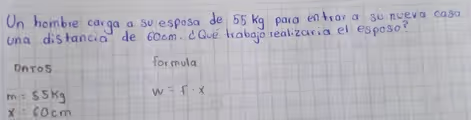 Un hombre carga a su esposa de 55 kg para entrar a su nueva casa
una distancia de 60cm. ¿Qué trabajo realizaria el esposo?
DATOS formula
m = 55kg w = F · x
x = 60cm